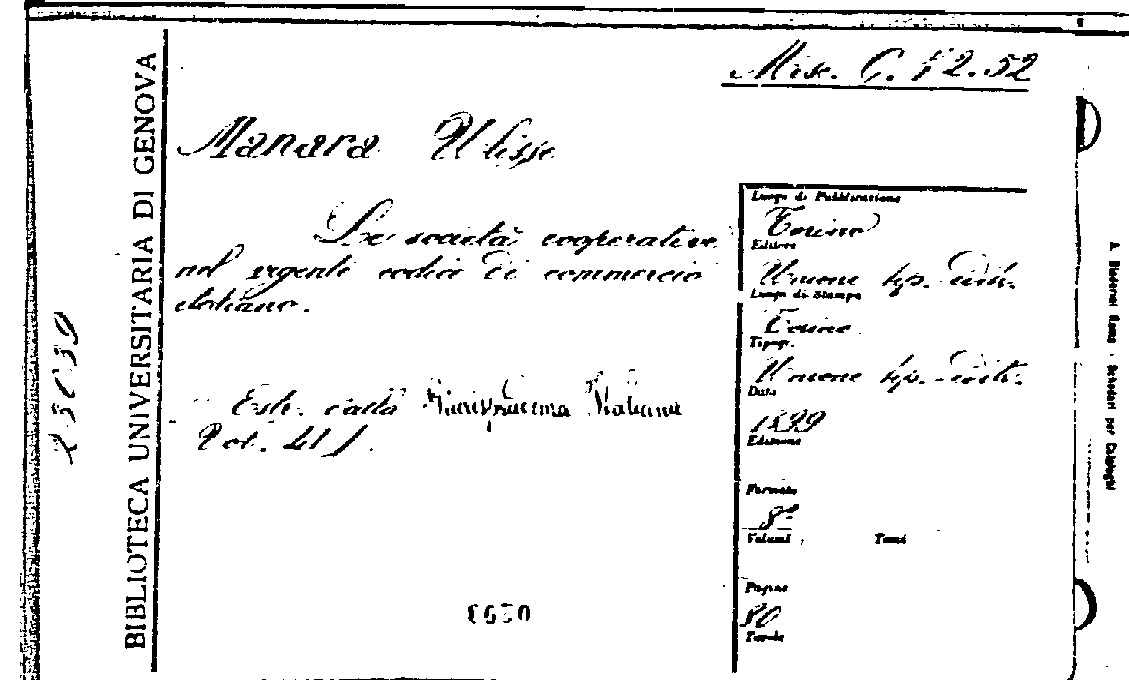 Misc. C. 12.52
BIBLIOTECA UNIVERSITARIA DI GENOVA
Manara Ulisse
Le società cooperative
nel vigente codice di commercio
italiano.
Estr. dalla Giurisprudenza Italiana
Vol. 41
Luogo di Pubblicazione
Torino
Editore
Unione tip.-edit.
Luogo di Stampa
Torino
Tipogr.
Unione tip.-edit.
Data
1899
Edizione
Formato
8º
Volumi Tomi
Pagine
80
Tavole
Schedari per Cataloghi